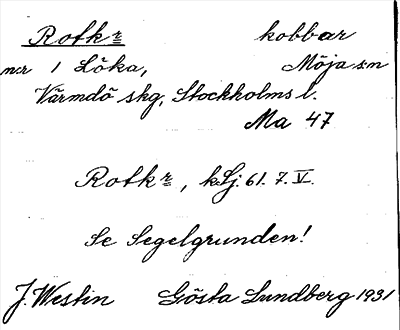 Rotkr kobbar
nr 1 Löka, Möja sn
Värmdö skg, Stockholms l.
Ma 47
Rotkr, kSj. 61. 7. V.
Se Segelgrunden!
J. Westin Gösta Lundberg 1931